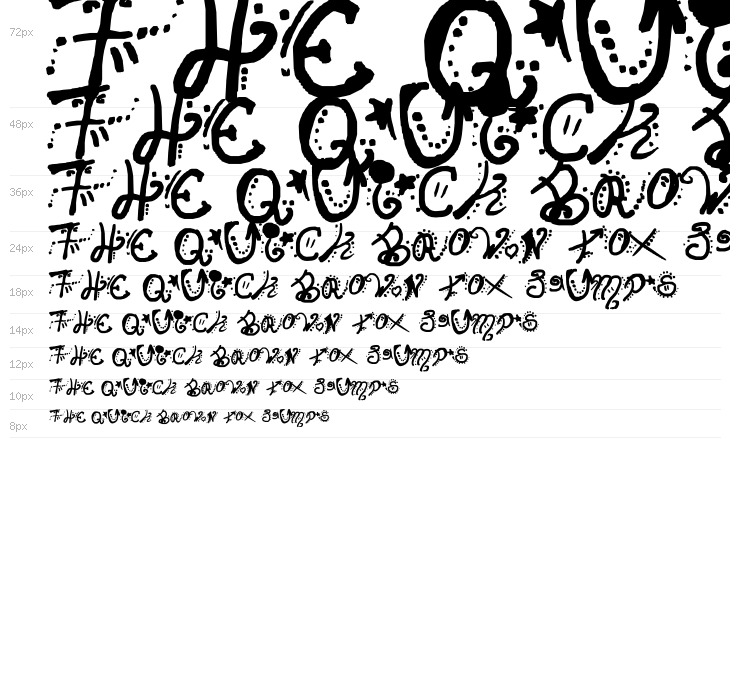 72px THE QU
48px THE QUICK B
36px THE QUICK BROW
24px THE QUICK BROWN FOX JU
18px THE QUICK BROWN FOX JUMPS
14px THE QUICK BROWN FOX JUMPS
12px THE QUICK BROWN FOX JUMPS
10px THE QUICK BROWN FOX JUMPS
8px THE QUICK BROWN FOX JUMPS